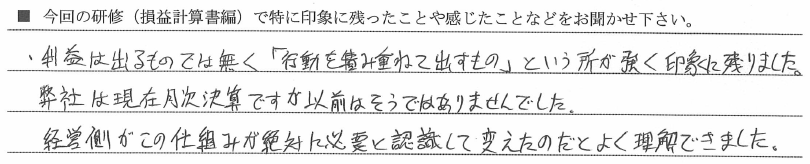 ■ 今回の研修（損益計算書編）で特に印象に残ったことや感じたことなどをお聞かせ下さい。
・利益は出るものでは無く「行動を積み重ねて出すもの」という所が強く印象に残りました。
弊社は現在月次決算ですが以前はそうではありませんでした。
経営側がこの仕組みが絶対に必要と認識して変えたのだとよく理解できました。